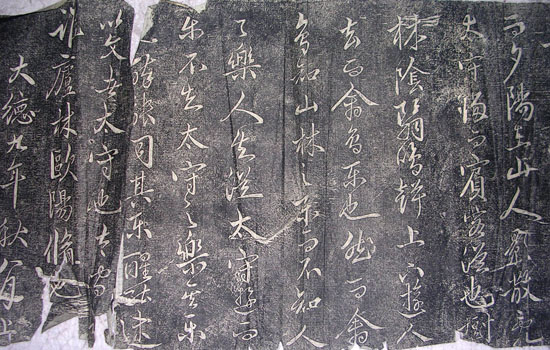 而夕陽在山人影散亂
太守歸而賓客從也樹
林陰翳鳴聲上下遊人
去而禽鳥樂也然而禽
鳥知山林之樂而不知人
之樂人知從太守遊而
樂不知太守之樂其樂
也醉能同其樂醒能述
以文者太守也太守謂
誰廬林歐陽脩也
大德九年秋八月上